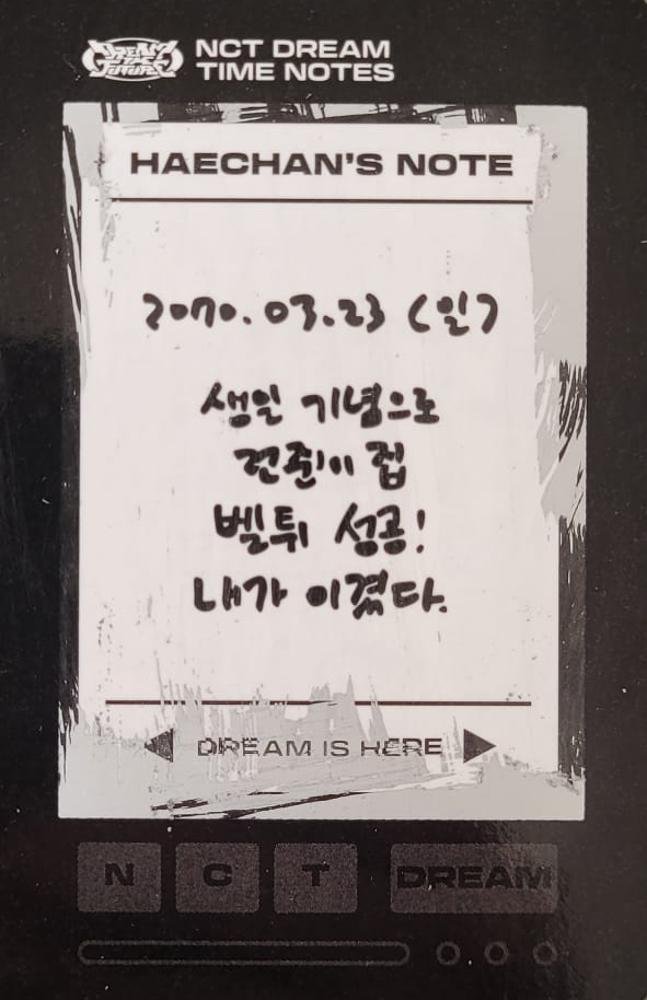 DREAM
THE
FUTURE
NCT DREAM
TIME NOTES
HAECHAN'S NOTE
2070.03.23 (일)
생일 기념으로
런쥔이 집
벨튀 성공!
내가 이겼다.
◀ DREAM IS HERE ▶
N C T DREAM